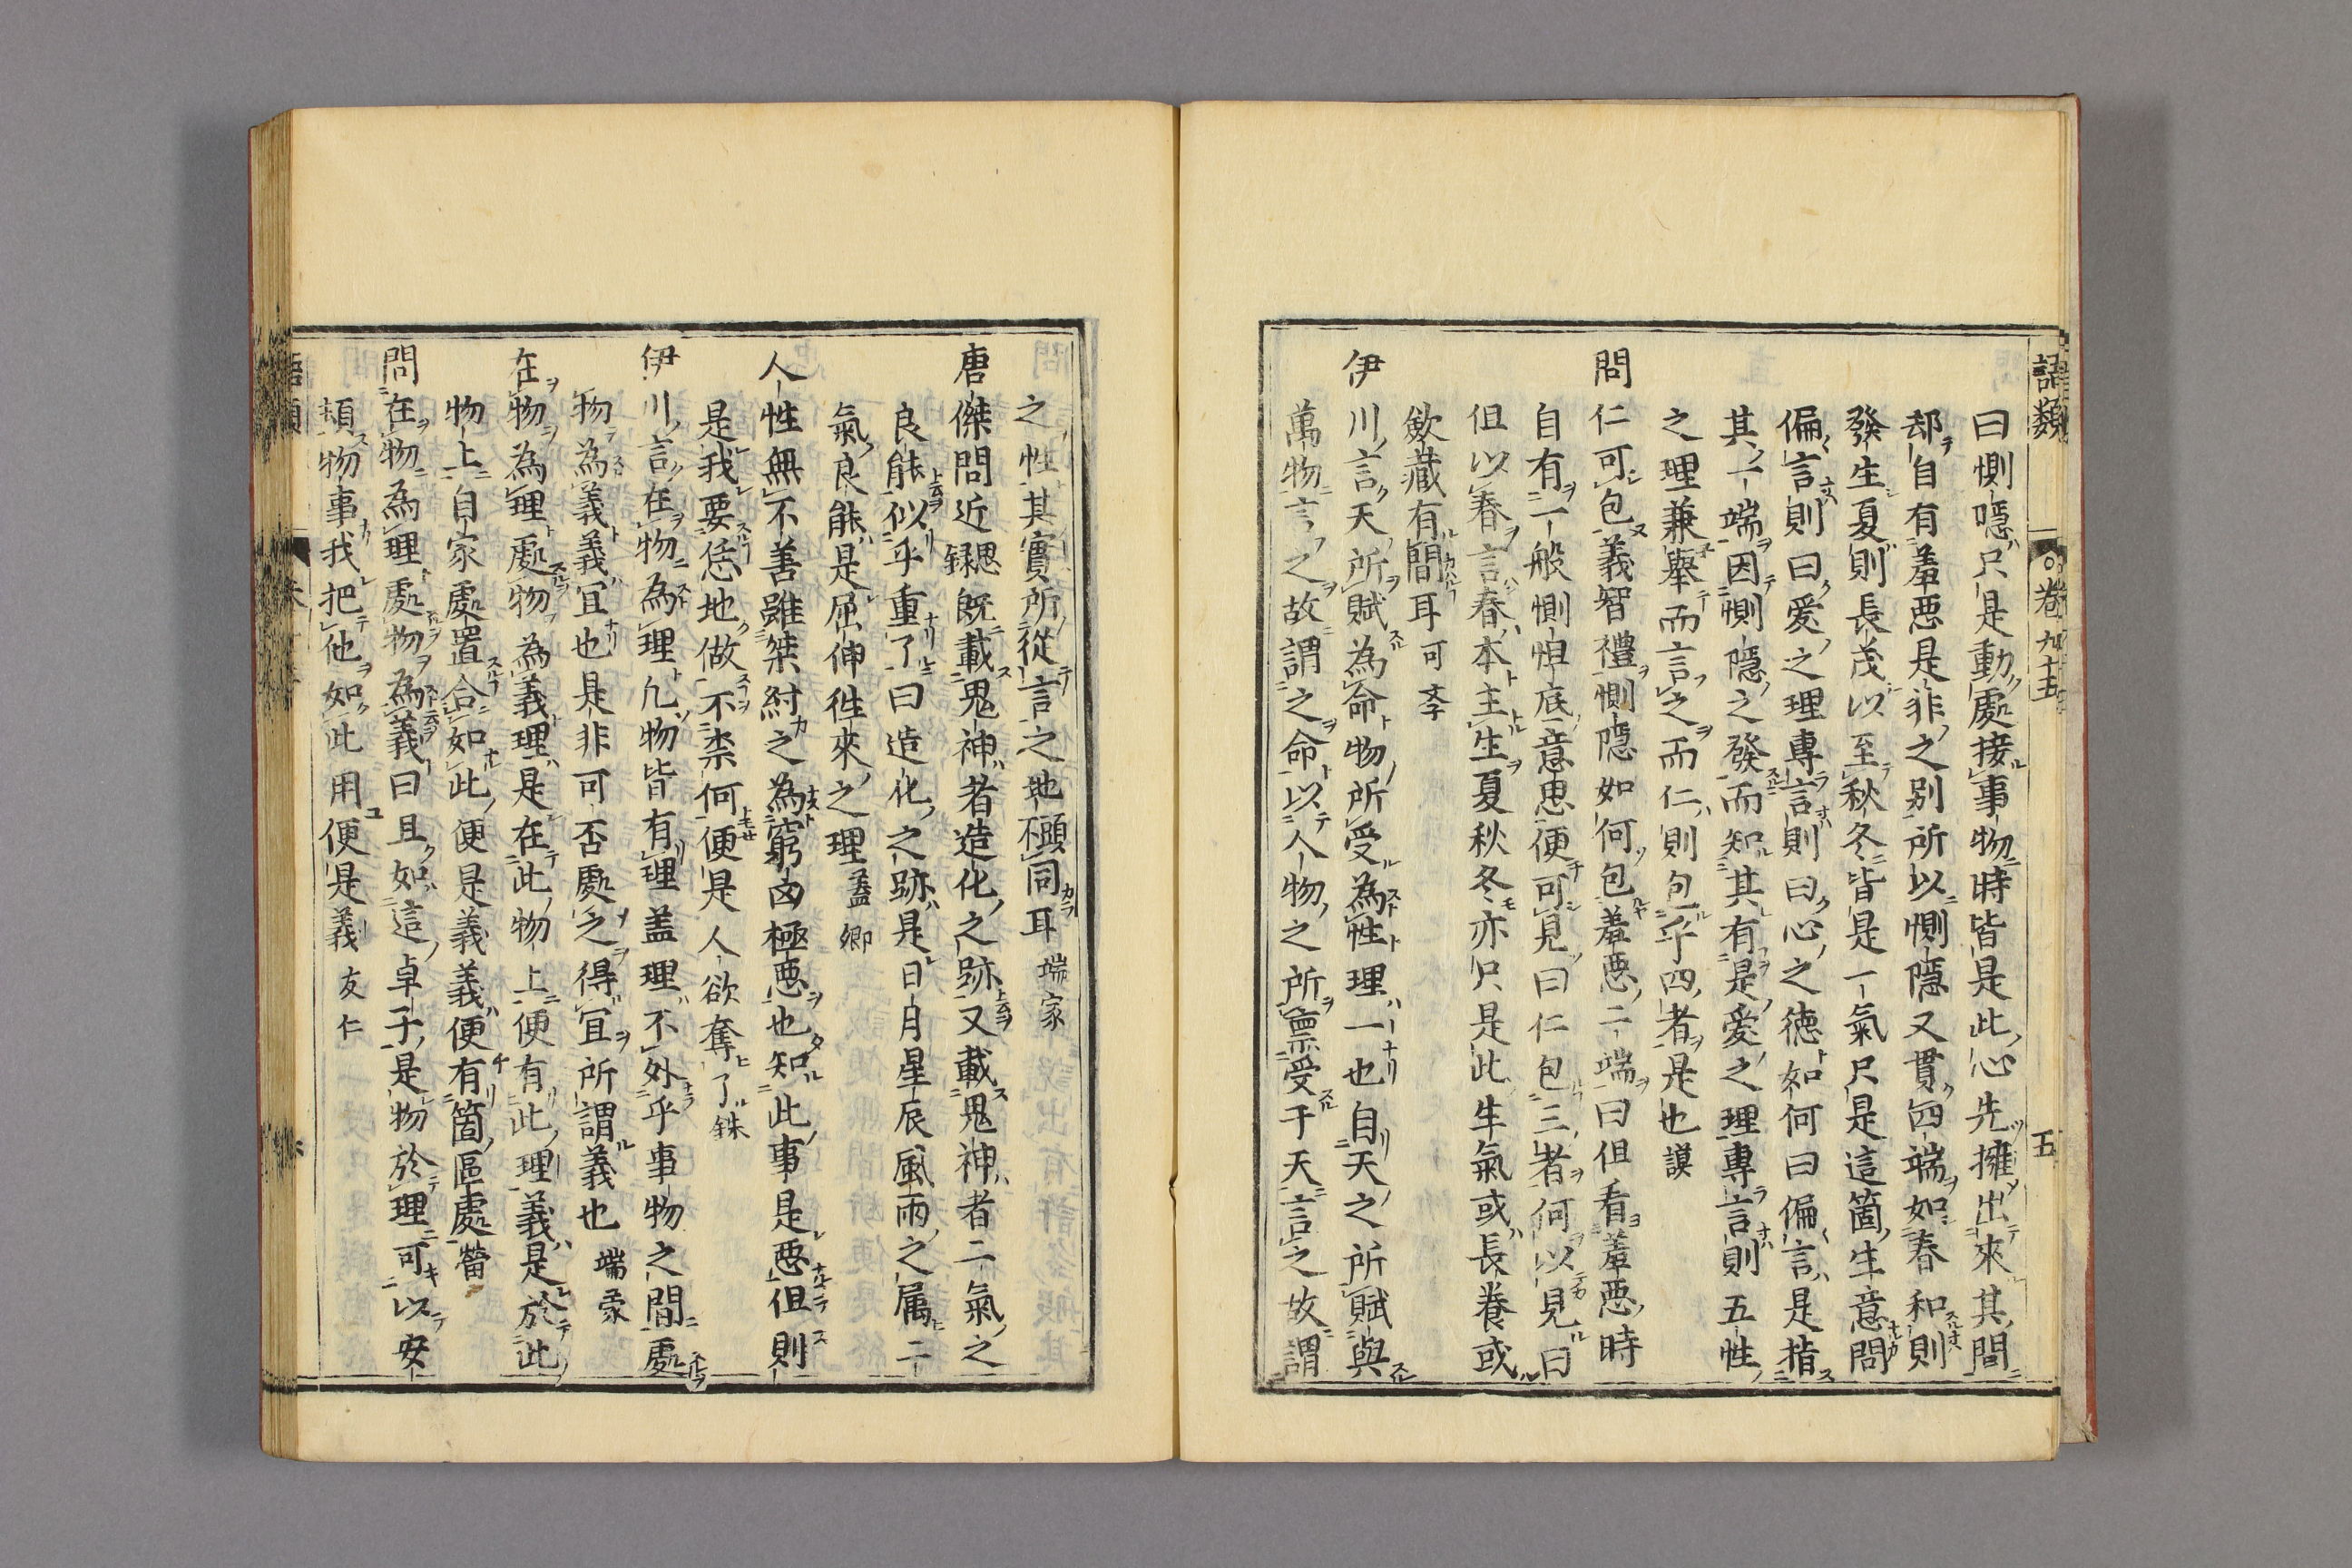 語類 卷九十五 五
曰惻隱只是動處接事物時皆是此心先擁出來其間
却自有羞惡是非之别所以惻隱又貫四端如春和則
發生夏則長茂以至秋冬皆是一氣只是這箇生意問
偏言則曰愛之理專言則曰心之德如何曰偏言是指
其一端因惻隱之發而知其有是愛之理專言則五性
之理兼舉而言之而仁則包乎四者是也謨
問仁可包義智禮惻隱如何包羞惡二端曰但看羞惡時
自有一般惻怛底意思便可見曰仁包三者何以見曰
但以春言春本主生夏秋冬亦只是此生氣或長養或
歛藏有間耳可孝
伊川言天所賦為命物所受為性理一也自天之所賦與
萬物言之故謂之命以人物之所禀受于天言之故謂
之性其實所從言之地不同耳端蒙
唐傑問近思録既載鬼神者造化之跡又載鬼神者二氣之
良能似乎重了曰造化之跡是日月星辰風雨之属二
氣良能是屈伸徃來之理蓋卿
人性無不善雖桀紂之為窮凶極惡也知此事是惡但則
是我要恁地做不柰何便是人欲奪了銖
伊川言在物為理凡物皆有理盖理不外乎事物之間處
物為義義宜也是非可否處之得宜所謂義也端蒙
在物為理處物為義理是在此物上便有此理義是於此
物上自家處置合如此便是義義便有箇區處㽦
問在物為理處物為義曰且如這卓子是物於理可以安
頓物事我把他如此用便是義友仁